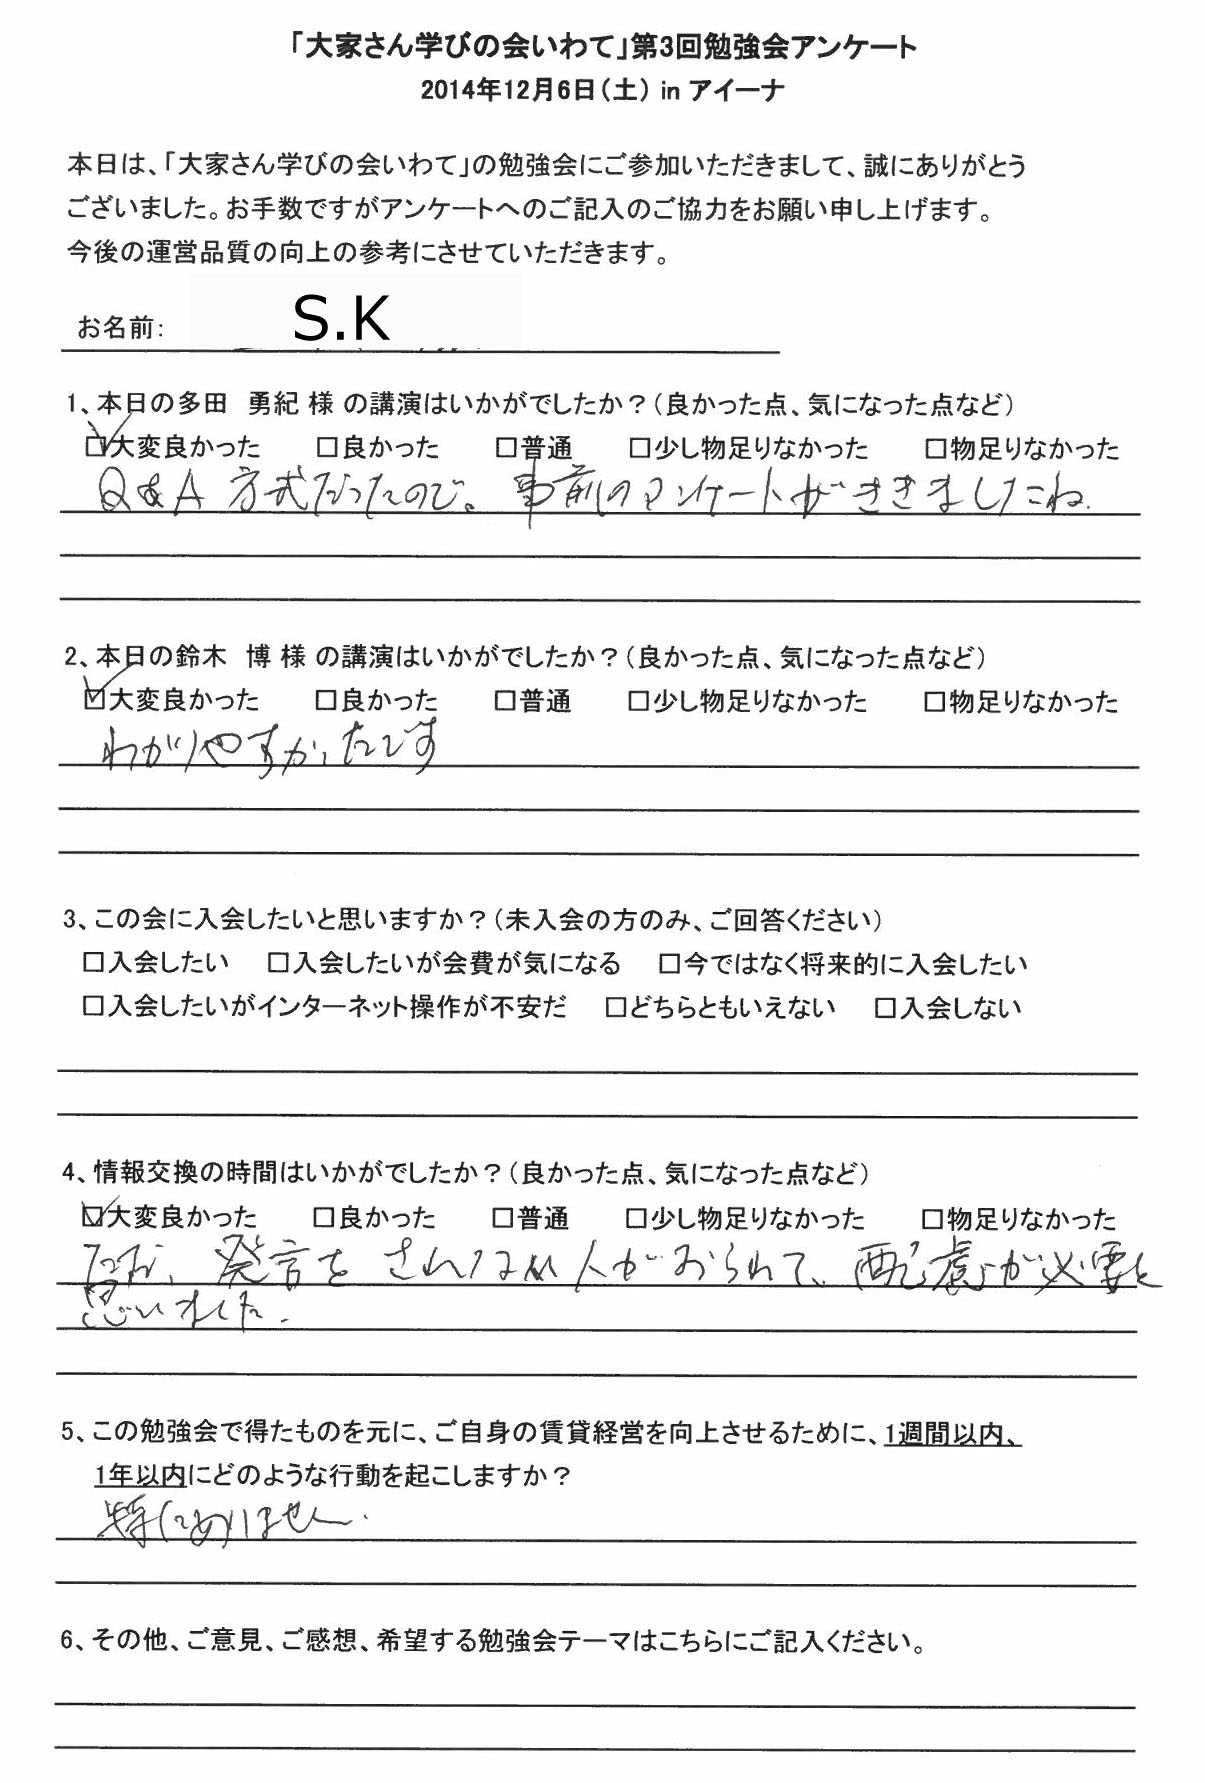 「大家さん学びの会いわて」第3回勉強会アンケート
2014年12月6日(土) in アイーナ
本日は、「大家さん学びの会いわて」の勉強会にご参加いただきまして、誠にありがとう
ございました。お手数ですがアンケートへのご記入のご協力をお願い申し上げます。
今後の運営品質の向上の参考にさせていただきます。
お名前: S.K
1、本日の多田　勇紀 様 の講演はいかがでしたか?(良かった点、気になった点など)
☑大変良かった　□良かった　□普通　□少し物足りなかった　□物足りなかった
Q&A 方式だったので。事前のアンケートがききましたね.
2、本日の鈴木　博 様 の講演はいかがでしたか?(良かった点、気になった点など)
☑大変良かった　□良かった　□普通　□少し物足りなかった　□物足りなかった
わかりやすかったです
3、この会に入会したいと思いますか?(未入会の方のみ、ご回答ください)
□入会したい　□入会したいが会費が気になる　□今ではなく将来的に入会したい
□入会したいがインターネット操作が不安だ　□どちらともいえない　□入会しない
4、情報交換の時間はいかがでしたか?(良かった点、気になった点など)
☑大変良かった　□良かった　□普通　□少し物足りなかった　□物足りなかった
ただ、発言をされない人がおられて、配慮が必要と
思いました.
5、この勉強会で得たものを元に、ご自身の賃貸経営を向上させるために、1週間以内、
1年以内にどのような行動を起こしますか?
特にありません.
6、その他、ご意見、ご感想、希望する勉強会テーマはこちらにご記入ください。